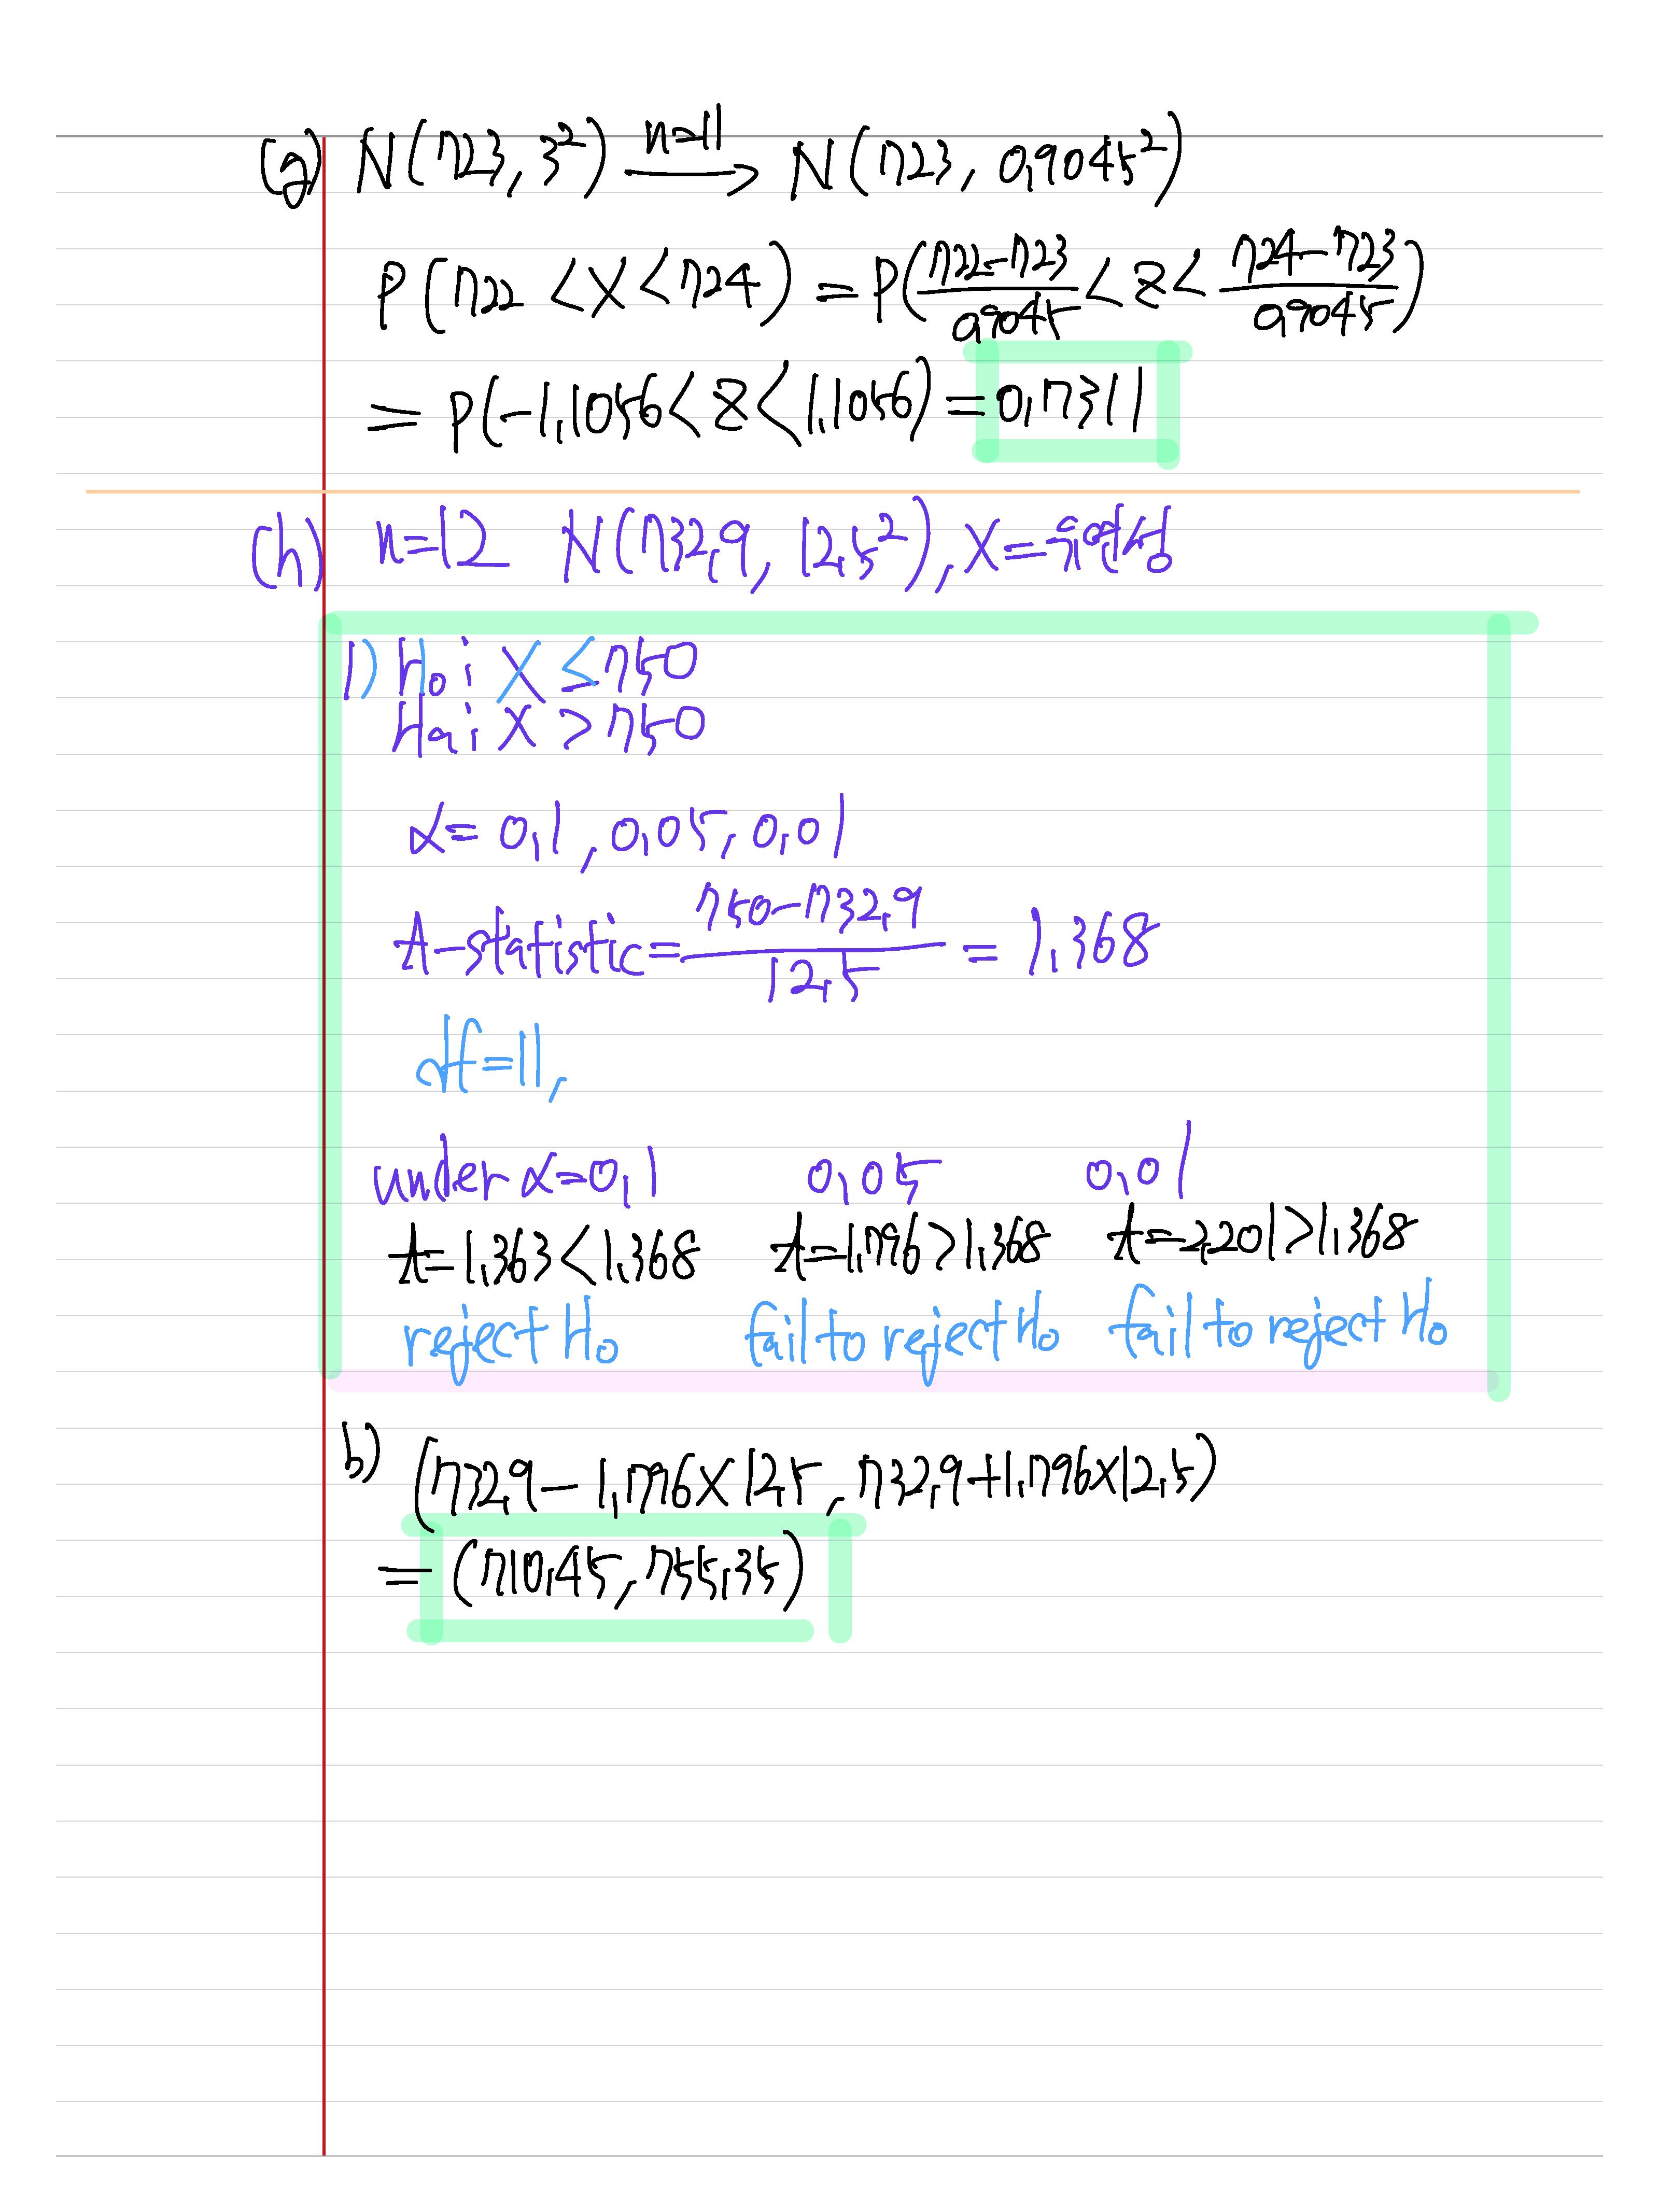 (g) N(723, 3²) n=11 → N(723, 0.9045²)
P(722 < X < 724) = P(722-723/0.9045 < Z < 724-723/0.9045)
= P(-1.1056 < Z < 1.1056) = 0.7311
(h) n=12 N(732.9, 12.5²), X =
1) H₀: X ≤ 750
Ha: X > 750
α = 0.1, 0.05, 0.01
t-statistic = 750-732.9/12.5 = 1.368
df=11,
under α=0.1 0.05 0.01
t=1.363<1.368 t=1.796>1.368 t=2.201>1.368
reject H₀ fail to reject H₀ fail to reject H₀
b) (732.9 - 1.796×12.5, 732.9+1.796×12.5)
= (710.45, 755.35)